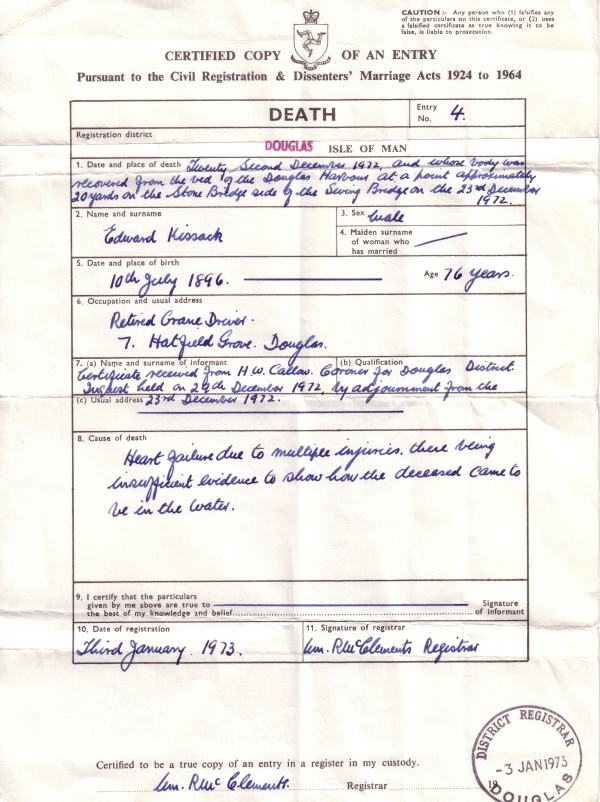 CAUTION :- Any person who (1) falsifies any
of the particulars on this certificate, or (2) uses
a falsified certificate as true knowing it to be
false, is liable to prosecution.
CERTIFIED COPY OF AN ENTRY
Pursuant to the Civil Registration & Dissenters' Marriage Acts 1924 to 1964
DEATH
Entry No. 4.
Registration district
DOUGLAS ISLE OF MAN
1. Date and place of death Twenty Second December 1972, and whose body was
recovered from the bed of the Douglas Harbour at a point approximately
20 yards on the Stone Bridge side of the Swing Bridge on the 23rd December
1972.
2. Name and surname
Edward Kissack
3. Sex Male
4. Maiden surname
of woman who
has married
5. Date and place of birth
10th July 1896.
Age 76 years.
6. Occupation and usual address
Retired Crane Driver.
7. Hatfield Grove. Douglas.
7. (a) Name and surname of informant (b) Qualification
Certificate received from H.W. Callow. Coroner for Douglas District.
Inquest held on 29th December 1972, by adjournment from the
(c) Usual address 23rd December 1972.
8. Cause of death
Heart failure due to multiple injuries. there being
insufficient evidence to show how the deceased came to
be in the water.
9. I certify that the particulars
given by me above are true to
the best of my knowledge and belief
Signature
of informant
10. Date of registration
Third January 1973.
11. Signature of registrar
Wm. R McClements Registrar
Certified to be a true copy of an entry in a register in my custody.
Wm. R McClements. Registrar
19
DISTRICT REGISTRAR
- 3 JAN 1973
DOUGLAS